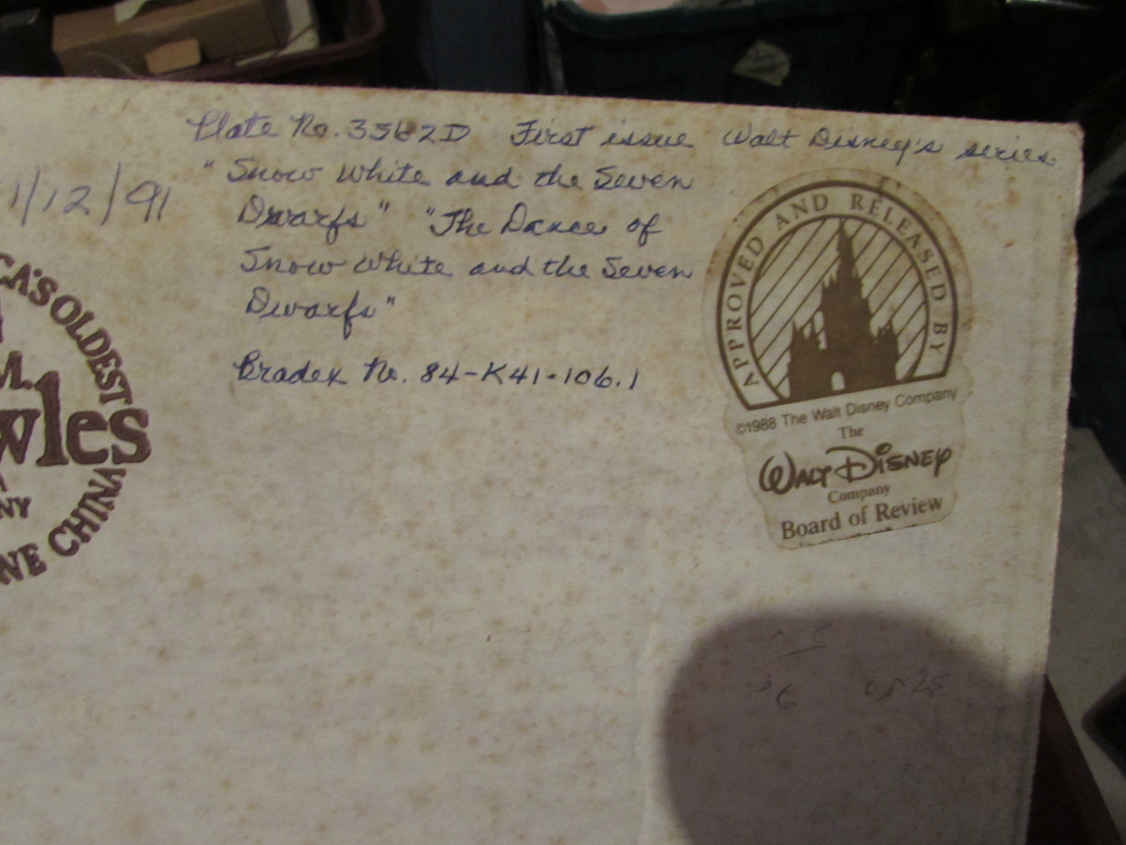 Plate No. 3562D First issue Walt Disney's series
"Snow White and the Seven
Dwarfs" "The Dance of
Snow White and the Seven
Dwarfs"
Bradex No. 84-K41-106.1
1/12/91
CA'S OLDEST
M.
wles
NY
NE CHINA
APPROVED AND RELEASED BY
©1988 The Walt Disney Company
The
WALT DISNEY
Company
Board of Review